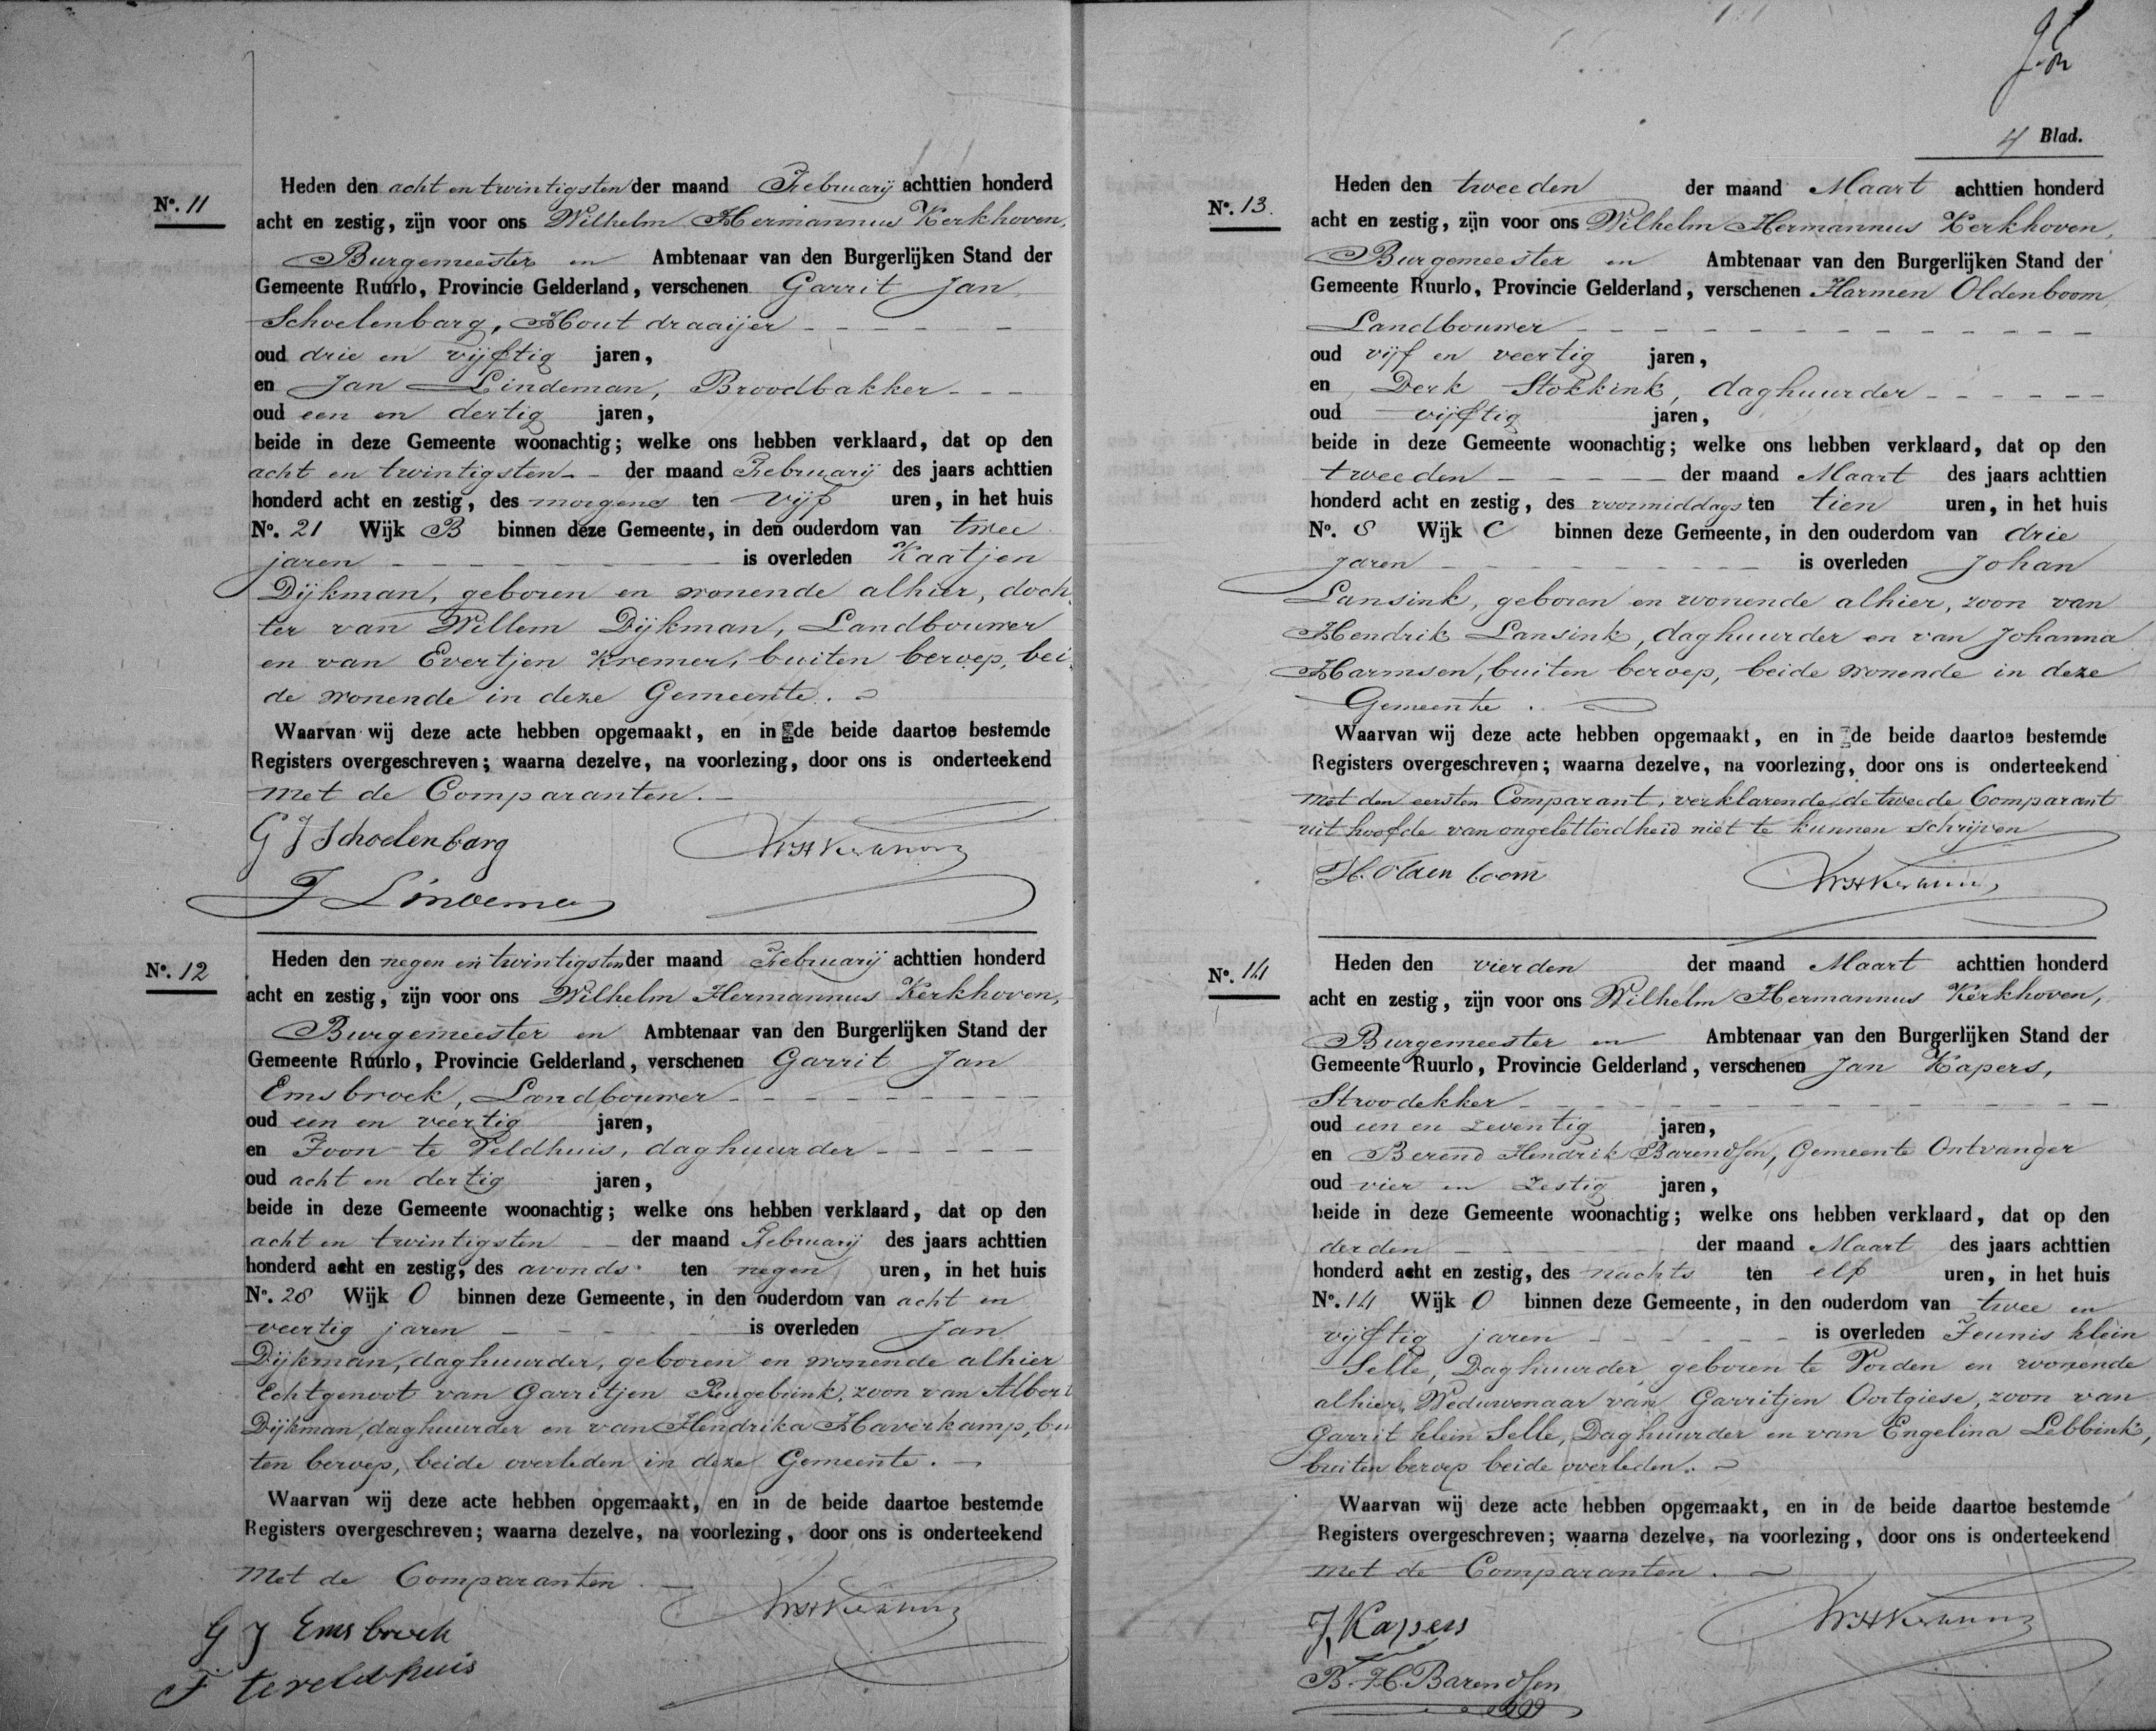 No. 11
Heden den acht en twintigsten der maand Februarij achttien honderd
acht en zestig, zijn voor ons Wilhelm Hermannus Kerkhoven,
Burgemeester en Ambtenaar van den Burgerlijken Stand der
Gemeente Ruurlo, Provincie Gelderland, verschenen Garrit Jan
Schoelenbarg, Hout draaijer
oud drie en vijftig jaren,
en Jan Lindeman, Broodbakker
oud een en dertig jaren,
beide in deze Gemeente woonachtig; welke ons hebben verklaard, dat op den
acht en twintigsten der maand Februarij des jaars achttien
honderd acht en zestig, des morgens ten vijf uren, in het huis
No. 21 Wijk B binnen deze Gemeente, in den ouderdom van twee
jaren is overleden Kaatjen
Dijkman, geboren en wonende alhier, doch
ter van Willem Dijkman, Landbouwer
en van Evertjen Kremer, buiten beroep, bei
de wonende in deze Gemeente.
Waarvan wij deze acte hebben opgemaakt, en in de beide daartoe bestemde
Registers overgeschreven; waarna dezelve, na voorlezing, door ons is onderteekend
met de Comparanten.
G J Schoelenbarg
WHKerkhoven
J Lindeman
No. 12
Heden den negen en twintigsten der maand Februarij achttien honderd
acht en zestig, zijn voor ons Wilhelm Hermannus Kerkhoven,
Burgemeester en Ambtenaar van den Burgerlijken Stand der
Gemeente Ruurlo, Provincie Gelderland, verschenen Garrit Jan
Emsbroek, Landbouwer
oud een en veertig jaren,
en Toon te Veldhuis, daghuurder
oud acht en dertig jaren,
beide in deze Gemeente woonachtig; welke ons hebben verklaard, dat op den
acht en twintigsten der maand Februarij des jaars achttien
honderd acht en zestig, des avonds ten negen uren, in het huis
No. 28 Wijk O binnen deze Gemeente, in den ouderdom van acht en
veertig jaren is overleden Jan
Dijkman, daghuurder, geboren en wonende alhier
Echtgenoot van Garritjen Reugebrink, zoon van Albert
Dijkman, daghuurder en van Hendrika Haverkamp, bu
ten beroep, beide overleden in deze Gemeente.
Waarvan wij deze acte hebben opgemaakt, en in de beide daartoe bestemde
Registers overgeschreven; waarna dezelve, na voorlezing, door ons is onderteekend
met de Comparanten
WHKerkhoven
G J Emsbroek
T te veldhuis
4 Blad.
No. 13.
Heden den tweeden der maand Maart achttien honderd
acht en zestig, zijn voor ons Wilhelm Hermannus Kerkhoven,
Burgemeester en Ambtenaar van den Burgerlijken Stand der
Gemeente Ruurlo, Provincie Gelderland, verschenen Harmen Oldenboom,
Landbouwer
oud vijf en veertig jaren,
en Derk Stokkink, daghuurder
oud vijftig jaren,
beide in deze Gemeente woonachtig; welke ons hebben verklaard, dat op den
tweeden der maand Maart des jaars achttien
honderd acht en zestig, des voormiddags ten tien uren, in het huis
No. 8 Wijk C binnen deze Gemeente, in den ouderdom van drie
jaren is overleden Johan
Lansink, geboren en wonende alhier, zoon van
Hendrik Lansink, daghuurder en van Johanna
Harmsen, buiten beroep, beide wonende in deze
Gemeente.
Waarvan wij deze acte hebben opgemaakt, en in de beide daartoe bestemde
Registers overgeschreven; waarna dezelve, na voorlezing, door ons is onderteekend
met den eersten Comparant, verklarende de tweede Comparant
uit hoofde van ongeletterdheid niet te kunnen schrijven
H. Olden boom
WHKerkhoven
No. 14
Heden den vierden der maand Maart achttien honderd
acht en zestig, zijn voor ons Wilhelm Hermannus Kerkhoven,
Burgemeester en Ambtenaar van den Burgerlijken Stand der
Gemeente Ruurlo, Provincie Gelderland, verschenen Jan Kapers,
Stroodekker
oud een en zeventig jaren,
en Berend Hendrik Barendsen, Gemeente Ontvanger
oud vier en zestig jaren,
beide in deze Gemeente woonachtig; welke ons hebben verklaard, dat op den
derden der maand Maart des jaars achttien
honderd acht en zestig, des nachts ten elf uren, in het huis
No. 14 Wijk O binnen deze Gemeente, in den ouderdom van twee en
vijftig jaren is overleden Teunis klein
Selle, Daghuurder, geboren te Vorden en wonende
alhier, Weduwenaar van Garritjen Oortgiese, zoon van
Garrit klein Selle, Daghuurder en van Engelina Lebbink,
buiten beroep beide overleden.
Waarvan wij deze acte hebben opgemaakt, en in de beide daartoe bestemde
Registers overgeschreven; waarna dezelve, na voorlezing, door ons is onderteekend
met de Comparanten.
J. Kapers
WHKerkhoven
B. H. Barendsen